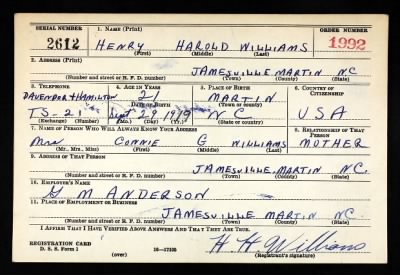 SERIAL NUMBER 1. NAME (Print) ORDER NUMBER
2612 HENRY HAROLD WILLIAMS 1992
(First) (Middle) (Last)
2. ADDRESS (Print)
JAMESVILLE MARTIN N.C.
(Number and street or R. F. D. number) (Town) (County) (State)
3. TELEPHONE 4. AGE IN YEARS 5. PLACE OF BIRTH 6. COUNTRY OF CITIZENSHIP
DAVENPORT & HAMILTON 21 MARTIN
DATE OF BIRTH (Town or county)
TS-21 Sept 29 1919 N C USA
(Exchange) (Number) (Mo.) (Day) (Yr.) (State or country)
7. NAME OF PERSON WHO WILL ALWAYS KNOW YOUR ADDRESS 8. RELATIONSHIP OF THAT PERSON
Mrs CONNIE G WILLIAMS MOTHER
(Mr., Mrs., Miss) (First) (Middle) (Last)
9. ADDRESS OF THAT PERSON
JAMESVILLE, MARTIN N.C.
(Number and street or R. F. D. number) (Town) (County) (State)
10. EMPLOYER'S NAME
G M ANDERSON
11. PLACE OF EMPLOYMENT OR BUSINESS
JAMESVILLE MARTIN N C
(Number and street or R. F. D. number) (Town) (County) (State)
I AFFIRM THAT I HAVE VERIFIED ABOVE ANSWERS AND THAT THEY ARE TRUE.
REGISTRATION CARD
D. S. S. Form 1 16—17105 H H Williams
(over) (Registrant's signature)